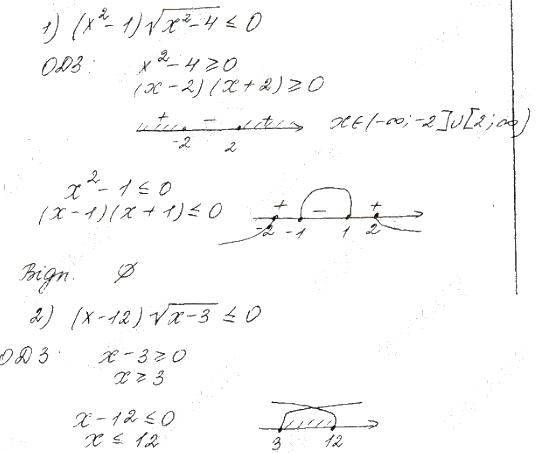 1) (x²-1)√(x²-4) ≤ 0
ОДЗ: x²-4 ≥ 0
(x-2)(x+2) ≥ 0
+ - + x∈(-∞;-2]∪[2;∞)
-2 2
x²-1 ≤ 0
(x-1)(x+1) ≤ 0 + - +
-2 -1 1 2
Вiдп. ∅
2) (x-12)√(x-3) ≤ 0
ОДЗ: x-3 ≥ 0
x ≥ 3
x-12 ≤ 0
x ≤ 12 3 12